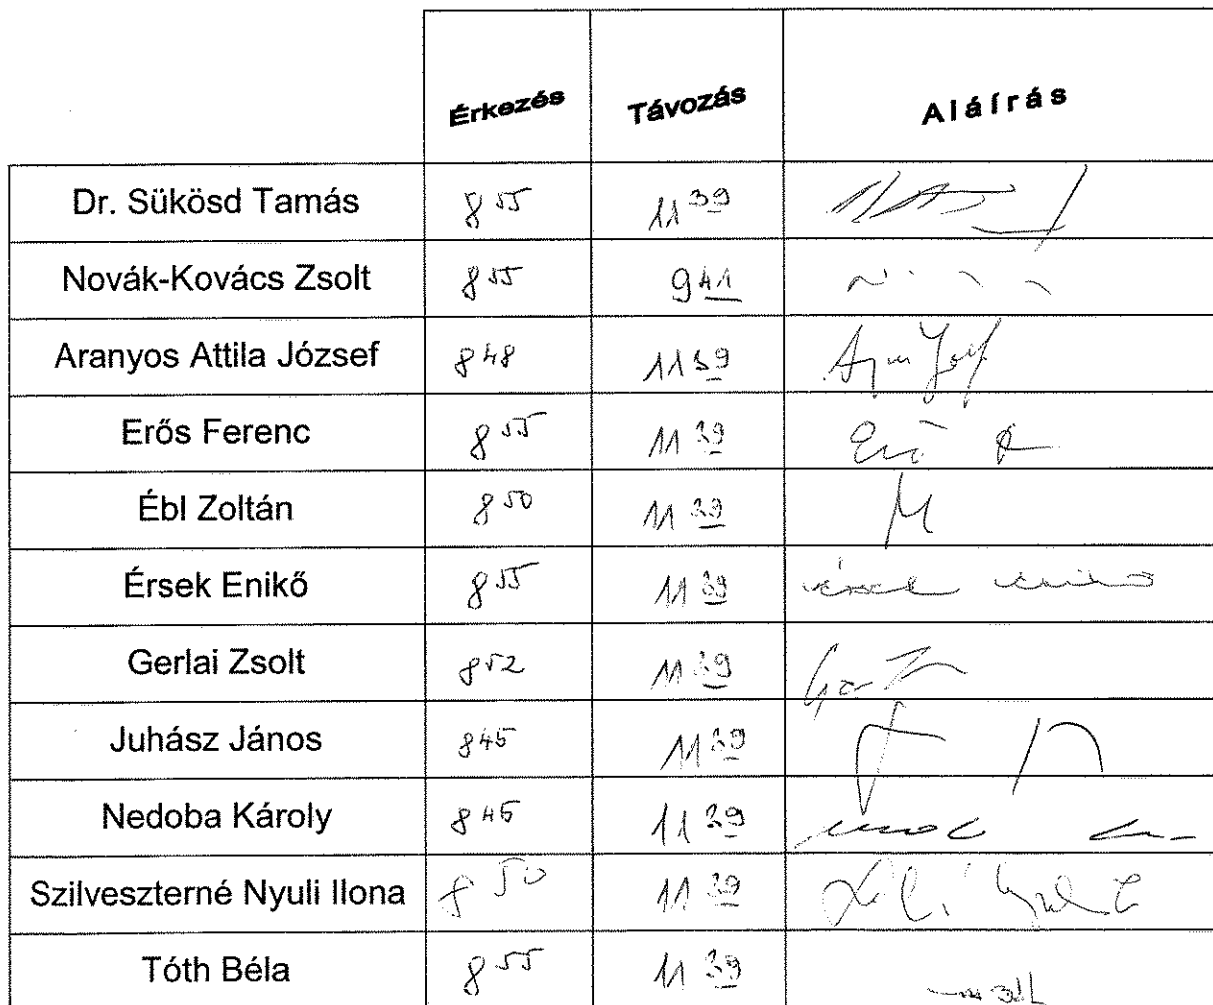 Érkezés Távozás Aláírás
Dr. Sükösd Tamás 8 55 11 39
Novák-Kovács Zsolt 8 55 9 41
Aranyos Attila József 8 48 11 39
Erős Ferenc 8 55 11 39
Ébl Zoltán 8 50 11 39
Érsek Enikő 8 55 11 39
Gerlai Zsolt 8 52 11 39
Juhász János 8 45 11 39
Nedoba Károly 8 45 11 39
Szilveszterné Nyuli Ilona 8 50 11 39
Tóth Béla 8 55 11 39